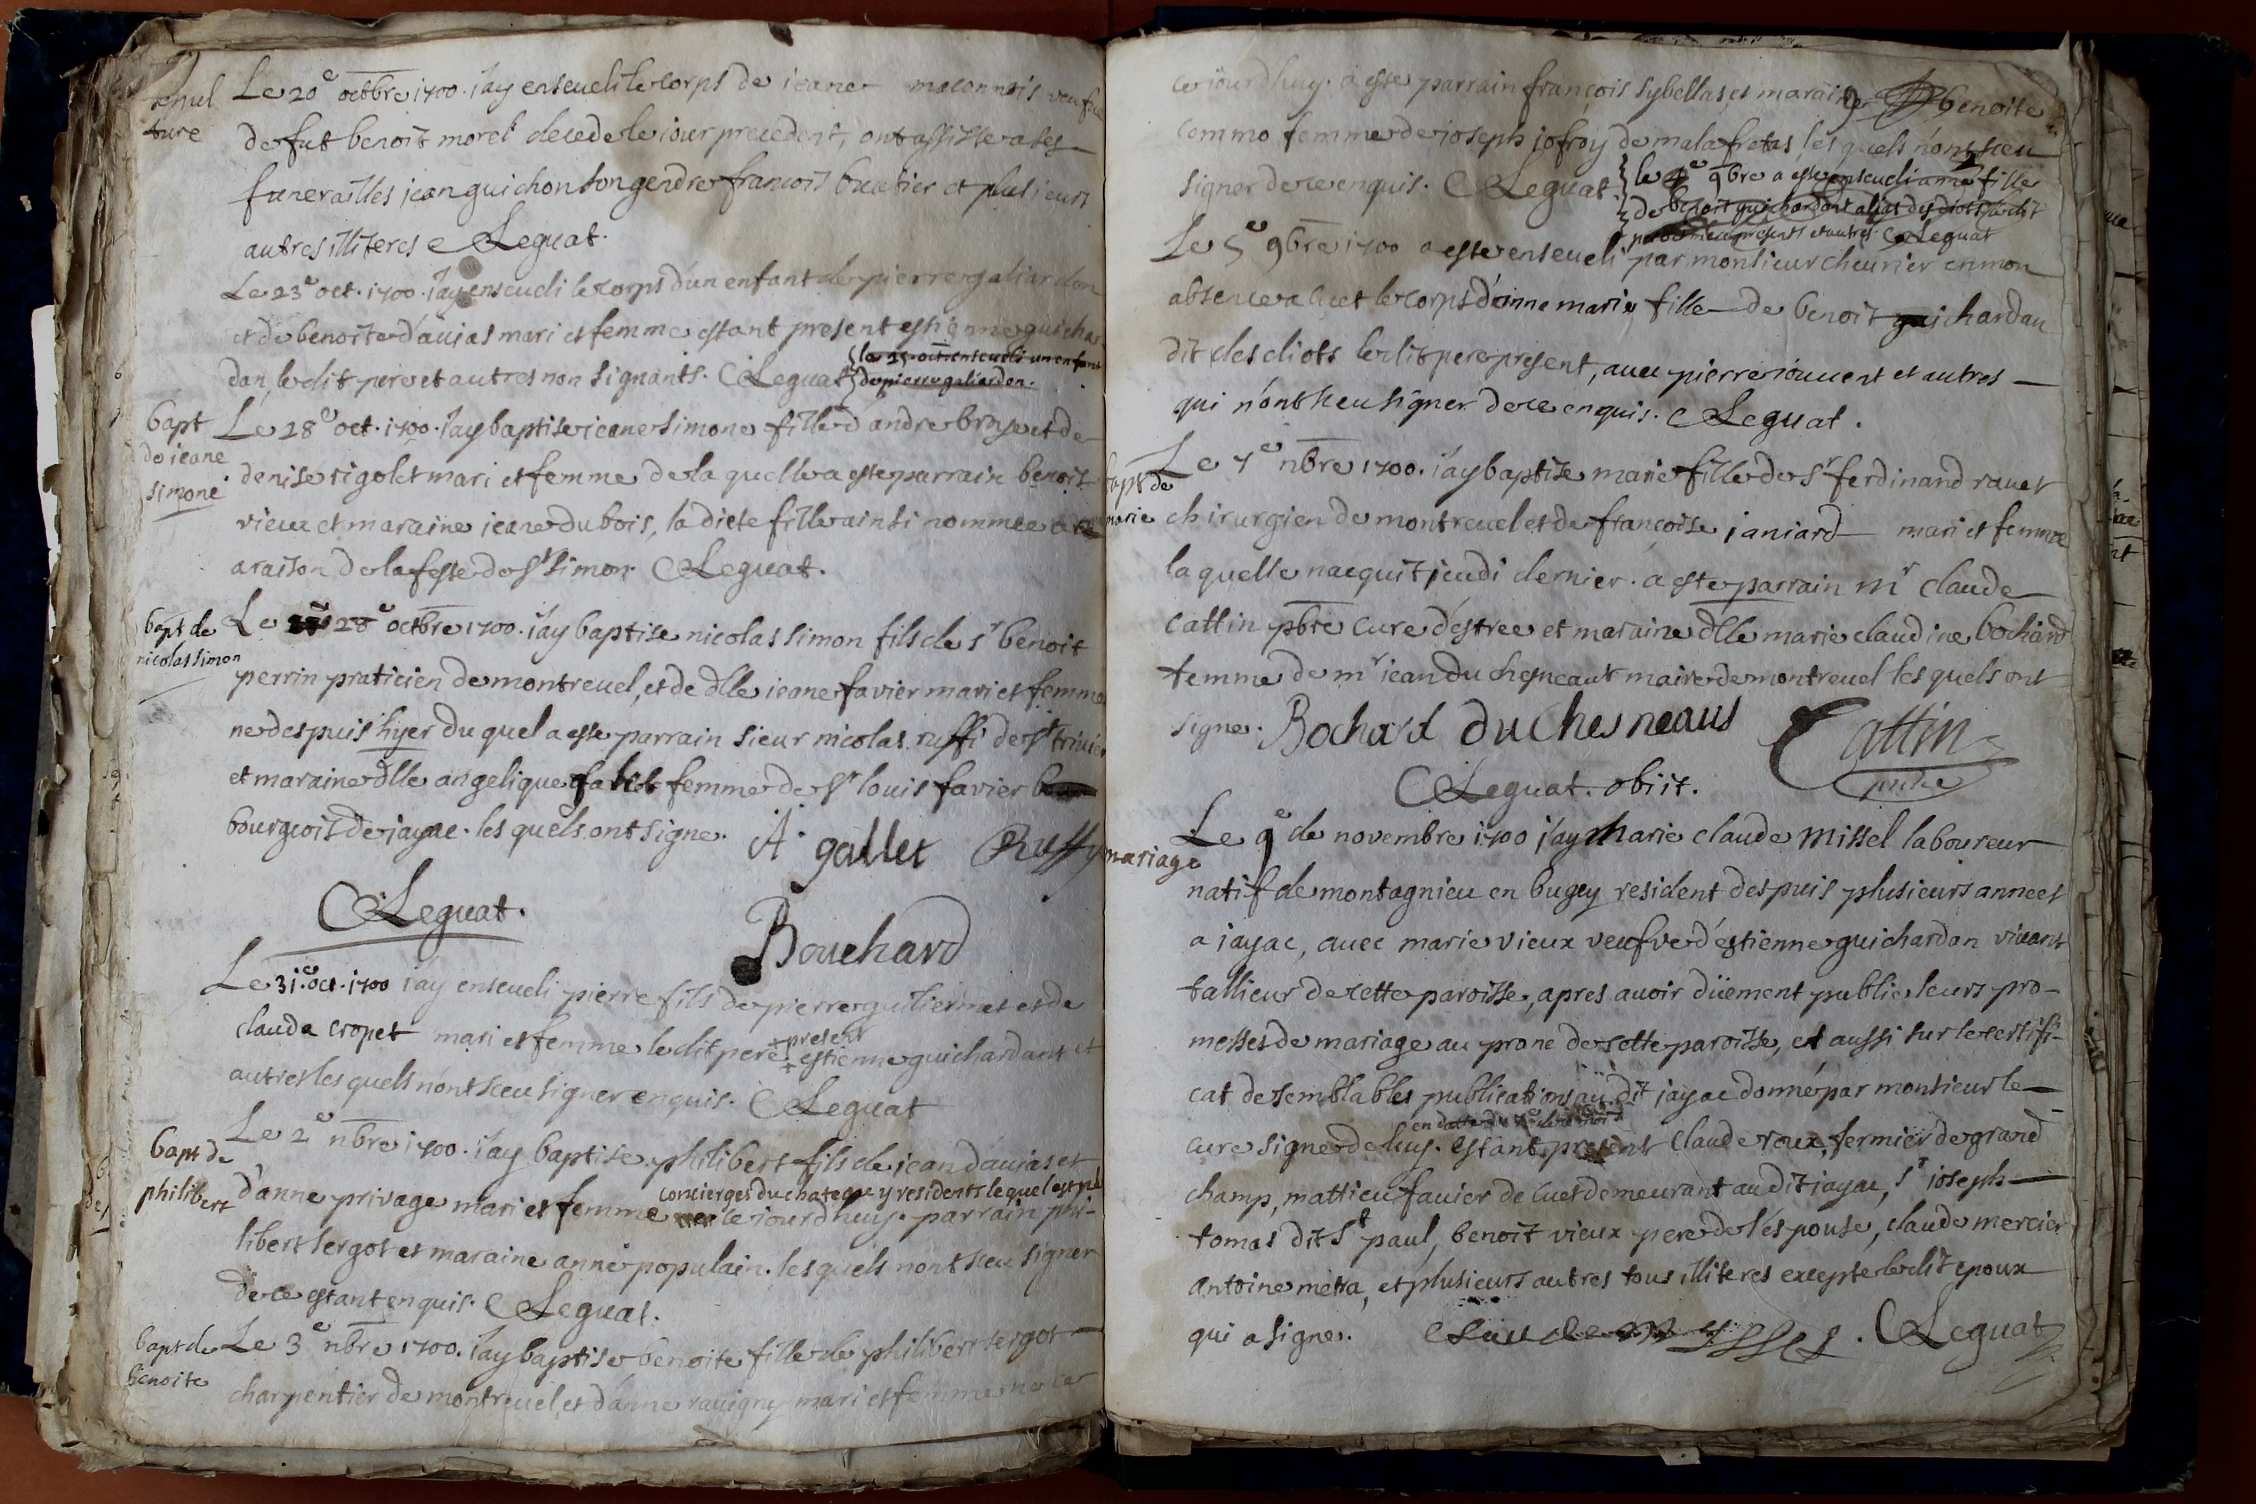 sepul
ture
Le 20e octbre 1700. j'ay enseueli le corps de jeane maconnais veufve
de fut benoit morel decede le jour precedent, ont assiste a ses
funerailles jean guichon son gendre francois buatier et plusieurs
autres illiteres CLeguat.
Le 23e oct. 1700. j'ay enseueli le corps d'un enfant de pierre galiardon
et de benoite d'aujas mari et femme estant present estienne guichar
dan, le dit pere et autres non signants. CLeguat
le 25 oct enseueli un enfant
de pierre galiardon.
bapt
de jeane
simone
Le 28e oct. 1700. j'ay baptise jeane simone fille d'andre broye et de
denise rigolet mari et femme de la quelle a este parrain benoit
vieux et maraine jeane du bois, la dicte fille ainsi nommee
a raison de la feste de st simon CLeguat.
bapt de
nicolas simon
Le 28e octbre 1700. j'ay baptise nicolas simon fils de sr benoit
perrin praticien de montreuel, et de dlle jeane favier mari et femme
ne despuis hyer du quel a este parrain sieur nicolas ruffi de st trivier
et maraine dlle angelique femme de sr louis favier
bourgeois de jayac. les quels ont signe. A. gallet Ruffy
CLeguat.
Bouchard
Le 31e. oct. 1700 j'ay enseueli pierre fils de pierre guiliermet et de
clauda cropet mari et femme le dit pere present estienne guichardant et
autres les quels n'ont sceu signer enquis. CLeguat
bapt de
philibert
Le 2e nbre 1700. j'ay baptise philibert fils de jean d'aujas et
d'anne privage mari et femme concierges du chateau y residents le quel est né
ce jourd'huy. parrain phi-
libert sergot et maraine anne populain. les quels n'ont sceu signer
de ce estant enquis. CLeguat.
bapt de
benoite
Le 3e nbre 1700. j'ay baptise benoite fille de philibert sergot
charpentier de montreuel, et d'anne rauigny mari et femme nee ce
ce jourd'huy. a este parrain françois sybellas et maraine benoite
commo femme de joseph jofroy de mala fretas, les quels n'ont sceu
signer de ce enquis. CLeguat
le 4e 9bre a este enseueli anne fille
de benoit guichardant alias des diots le dit
pere present et autres CLeguat
Le 5e 9bre 1700 a este enseueli par monsieur cheurier en mon
absence a cuet le corps d'anne marie fille de benoit guichardan
dit des diots le dit pere present, auec pierre jouuent et autres
qui n'ont sceu signer de ce enquis. CLeguat.
bapt de
marie
Le 7e nbre 1700. j'ay baptise marie fille de sr ferdinand rauet
chirurgien de montreuel et de françoise janiard mari et femme
la quelle nacquit jeudi dernier. a este parrain mr claude
cattin pbre cure d'estree et maraine dlle marie claudine bochard
femme de mr jean du chesneaut maire de montreuel les quels ont
signe. Bochard du Chesneaus Cattin
CLeguat. obiit.
mariage
Le 9e de novembre 1700 j'ay marie claude missel laboureur
natif de montagnieu en bugey resident despuis plusieurs annees
a jayac, auec marie vieux veufve d'estienne guichardan viuant
tallieur de cette paroisse, apres auoir düement publie leurs pro-
messes de mariage au prone de cette paroisse, et aussi sur le certifi-
cat de semblables publications au dit jayac donné par monsieur le
cure signe de luy. estant present claude roux, fermier de grand
champ, mattieu fauier de cuet demeurant au dit jayac, sr joseph
tomas dit st paul, benoit vieux pere de l'espouse, claude mercier
antoine metra, et plusieurs autres tous illiteres excepte le dit epoux
qui a signe. CLeguat